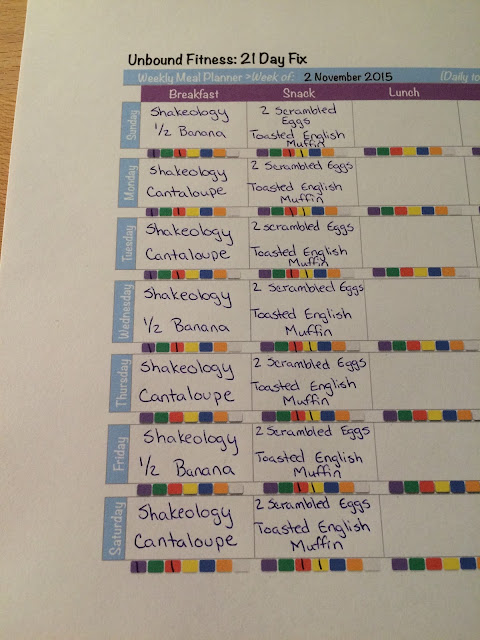 Unbound Fitness: 21 Day Fix
Weekly Meal Planner > Week of: 2 November 2015 (Daily to
Breakfast Snack Lunch
Sunday
Shakeology
1/2 Banana
2 Scrambled
Eggs
Toasted English
Muffin
Monday
Shakeology
Cantaloupe
2 Scrambled Eggs
Toasted English
Muffin
Tuesday
Shakeology
Cantaloupe
2 scrambled Eggs
Toasted English
Muffin
Wednesday
Shakeology
1/2 Banana
2 Scrambled Eggs
Toasted English
Muffin
Thursday
Shakeology
Cantaloupe
2 Scrambled Eggs
Toasted English
Muffin
Friday
Shakeology
1/2 Banana
2 Scrambled Eggs
Toasted English
Muffin
Saturday
Shakeology
Cantaloupe
2 Scrambled Eggs
Toasted English
Muffin